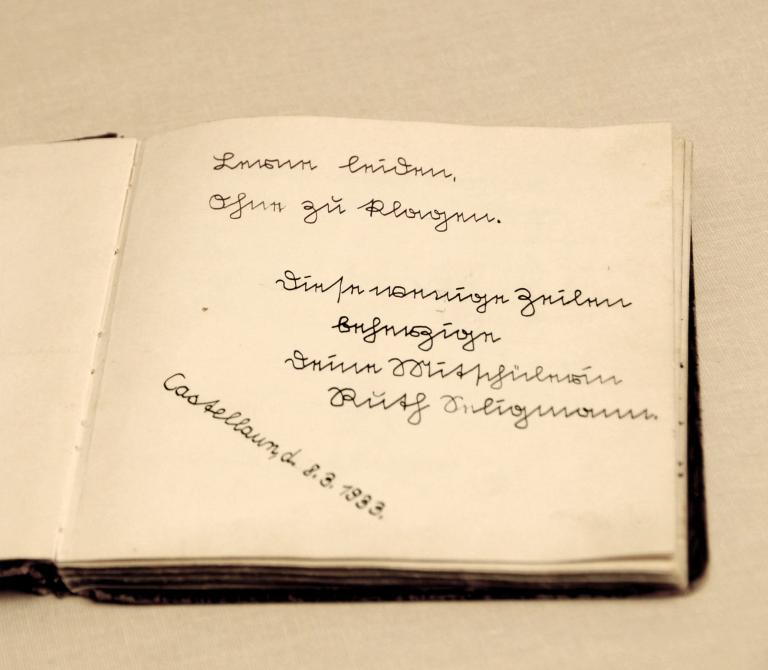 Lerne leiden,
Ohne zu klagen.
Diese wenige Zeilen
beherzige
Deine Mitschülerin
Ruth Seligmann.
Castellaun, d. 8.3.1933.